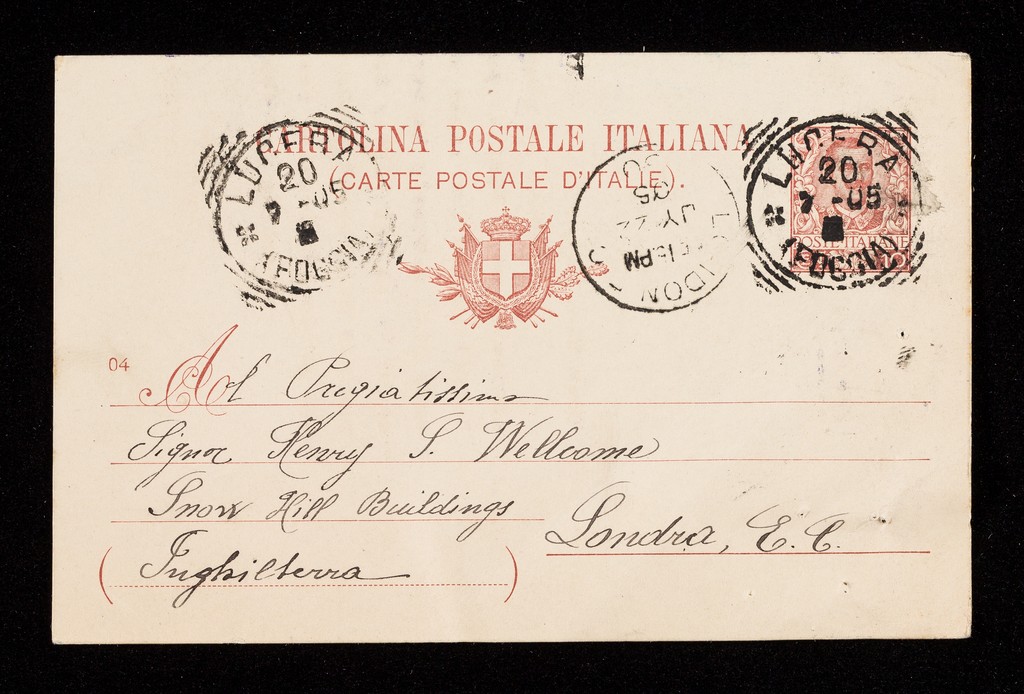 CARTOLINA POSTALE ITALIANA
(CARTE POSTALE D'ITALIE).
LUCERA
20
7 -05
(FOGGIA)
LONDON
5.15PM
JY 22
05
LUCERA
20
7 -05
(FOGGIA)
POSTE ITALIANE
04
Al Pregiatissimo
Signor Henry S. Wellcome
Snow Hill Buildings
Londra, E. C.
(Inghilterra)